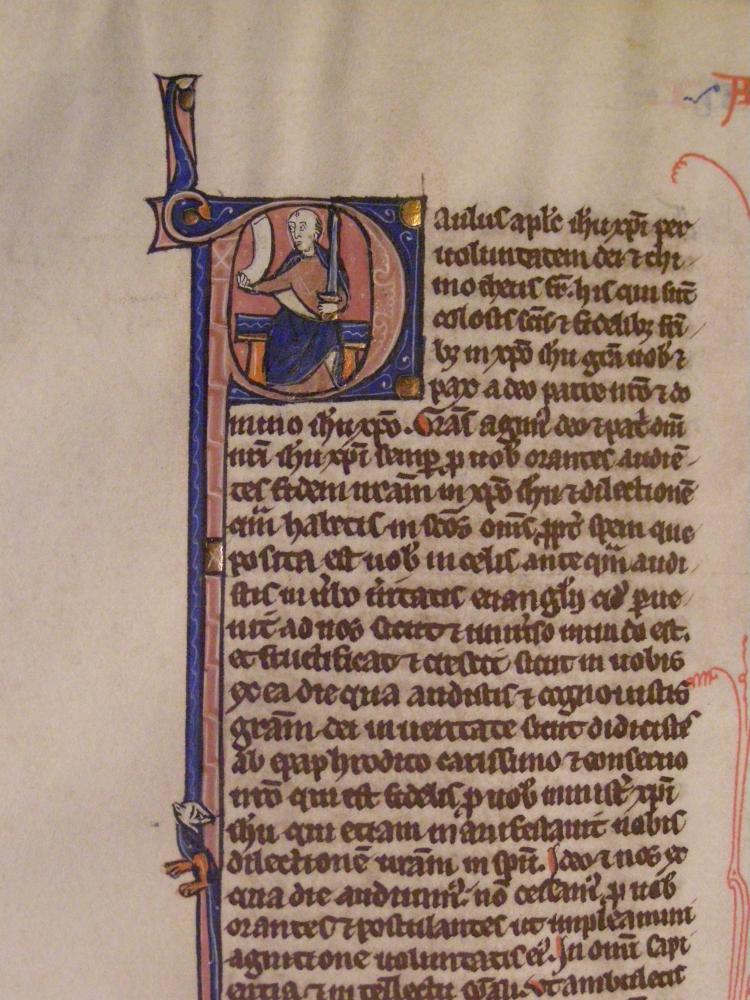 Paulus apl'c ihu xpi per
uoluntatem dei ⁊ thi
motheus fr̄. his qui sūt
colosis sc̄is ⁊ fidelibꝫ fr̄i
bꝫ in xpō ihu gr̄a uob ⁊
pax a deo patre nr̄o ⁊ do
mino ihu xpō. Gr̄as agim' deo ⁊ pat̄
nr̄i ihu xpi semꝑ ꝓ uob orantes audiē
tes fidem ur̄am in xpō ihu ⁊ dilectionē
quā habetis in scōs om̄s. ppt̄ spem que
posita est uob in celis ante quā audi
stis in ūbo ūitatis euangłij qd̄ ꝑue
nit ad nos sicut ⁊ in uniūso mundo est.
et fructificat ⁊ crescit sicut in uobis
ex ea die qua audistis ⁊ cognouistis
gr̄am dei in ueritate sicut didicistis
ab epaphrodito carissimo ⁊ conseruo
nr̄o qui est fidelis ꝓ uob minist̄ xpi
ihu qui etiam manifestauit nobis
dilectionē ur̄am in spū. Ideo ⁊ nos ex
qua die audiuim' nō cessam' ꝓ uob
orantes ⁊ postulantes ut impleamini
agnitione uoluntatis ei'. In omi sapi
entia ⁊ in tellectu spāli. Ut ambuletis